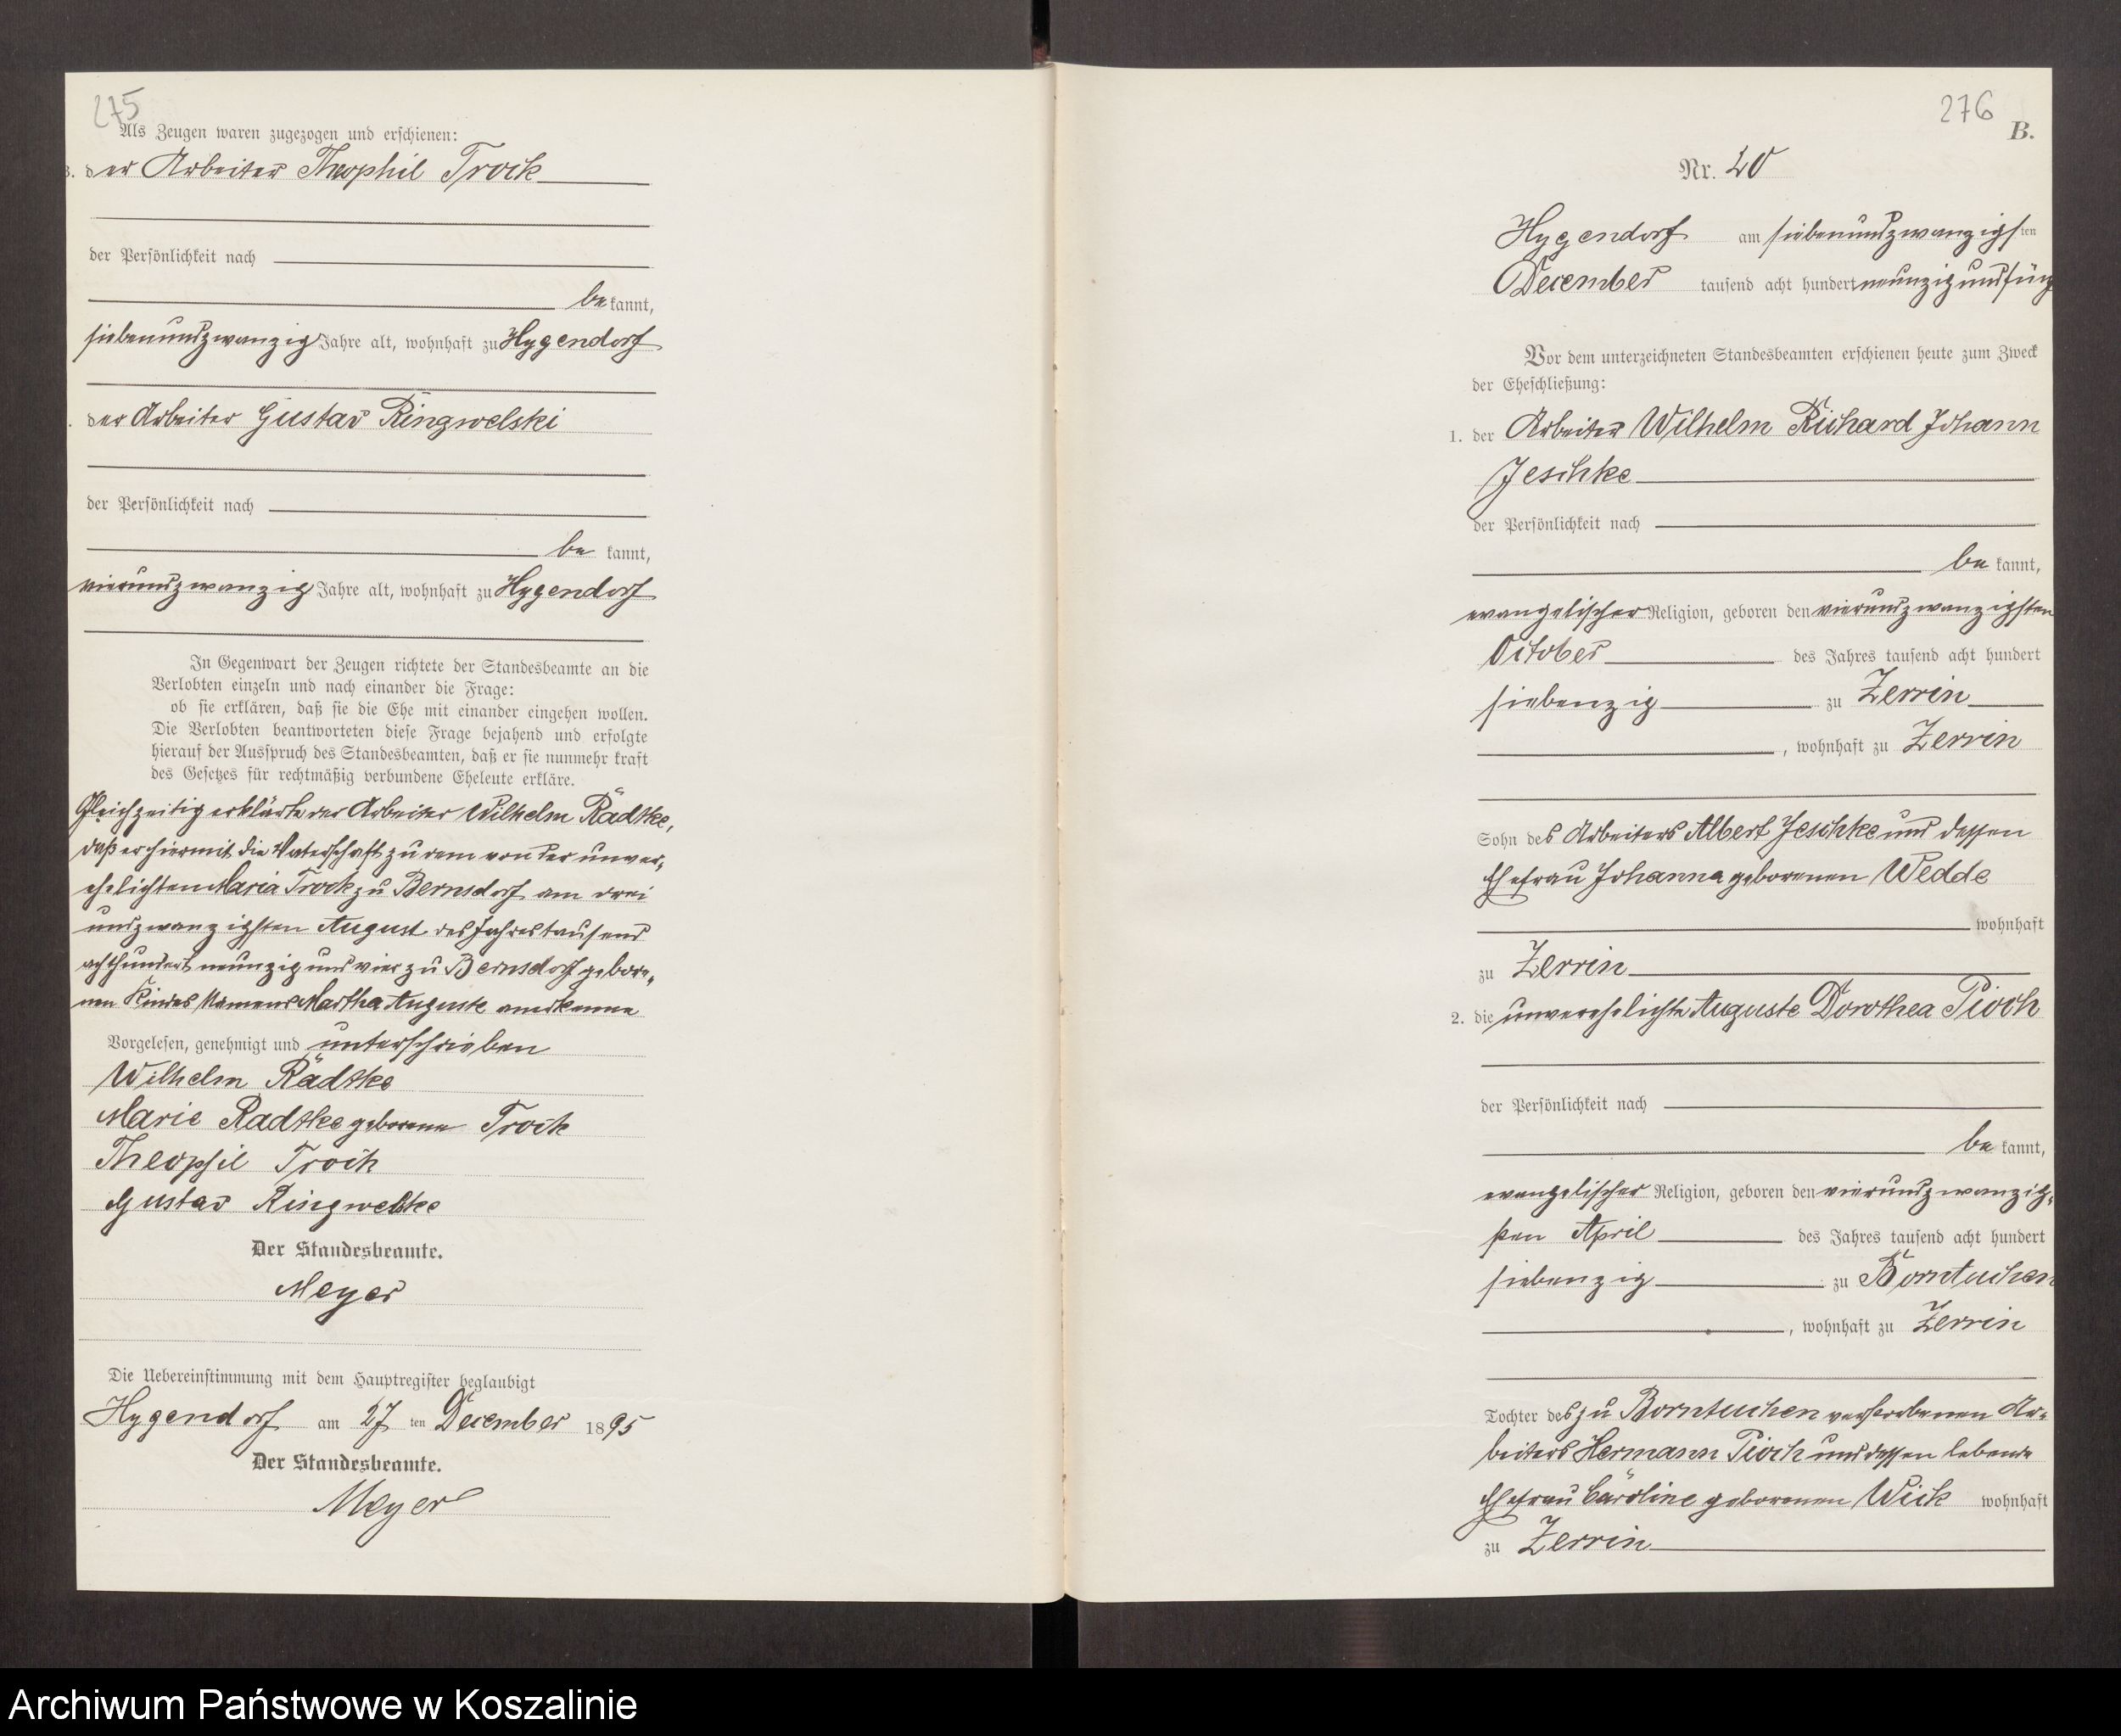 275
Als Zeugen waren zugezogen und erschienen:
3. der Arbeiter Theophil Trock
der Persönlichkeit nach
bekannt,
siebenundzwanzig Jahre alt, wohnhaft zu Hygendorf
der Arbeiter Gustav Ringwelski
der Persönlichkeit nach
be kannt,
vierundzwanzig Jahre alt, wohnhaft zu Hygendorf
In Gegenwart der Zeugen richtete der Standesbeamte an die
Verlobten einzeln und nach einander die Frage:
ob sie erklären, daß sie die Ehe mit einander eingehen wollen.
Die Verlobten beantworteten diese Frage bejahend und erfolgte
hierauf der Ausspruch des Standesbeamten, daß er sie nunmehr kraft
des Gesetzes für rechtmäßig verbundene Eheleute erkläre.
Gleichzeitig erklärte der Arbeiter Wilhelm Radtke,
daß er hiermit die Vaterschaft zu dem von der unver-
ehelichten Maria Trock zu Bernsdorf am drei
undzwanzigsten August des Jahres tausend
achthundert neunzig und vier zu Bernsdorf gebore-
nen Kindes Namens Martha Auguste anerkenne
Vorgelesen, genehmigt und unterschrieben
Wilhelm Radtke
Marie Radtke geborene Trock
Theophil Trock
Gustav Ringwelske
Der Standesbeamte.
Meyer
Die Uebereinstimmung mit dem Hauptregister beglaubigt
Hygendorf am 27 ten December 1895
Der Standesbeamte.
Meyer
276
B.
Nr. 20
Hygendorf am siebenundzwanzigsten
December tausend acht hundert neunzig und fünf
Vor dem unterzeichneten Standesbeamten erschienen heute zum Zweck
der Eheschließung:
1. der Arbeiter Wilhelm Richard Johann
Jeschke
der Persönlichkeit nach
be kannt,
evangelischer Religion, geboren den vierundzwanzigsten
October des Jahres tausend acht hundert
siebenzig zu Zerrin
, wohnhaft zu Zerrin
Sohn des Arbeiters Albert Jeschke und dessen
Ehefrau Johanna geborenen Wedde
wohnhaft
zu Zerrin
2. die unverehelichte Auguste Dorothea Pioch
der Persönlichkeit nach
be kannt,
evangelischer Religion, geboren den vierundzwanzig-
sten April des Jahres tausend acht hundert
siebenzig zu Borntuchen
, wohnhaft zu Zerrin
Tochter des zu Borntuchen verstorbenen Ar-
beiters Hermann Pioch und dessen lebende
Ehefrau Caroline geborenen Wick wohnhaft
zu Zerrin
Archiwum Państwowe w Koszalinie